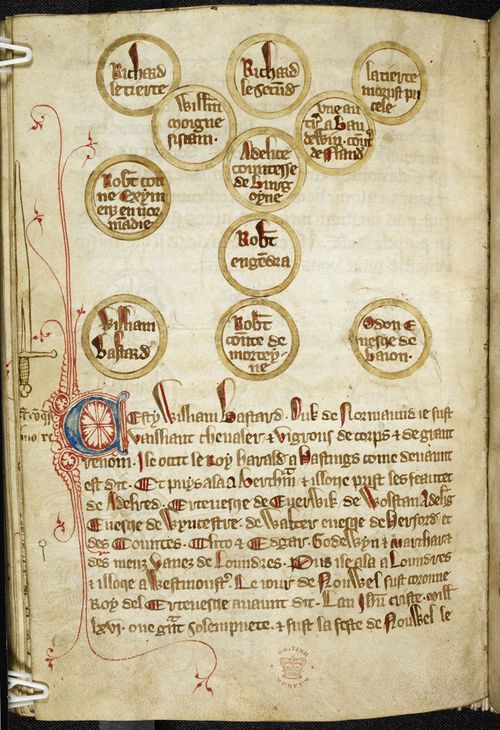 Richard
le tierce
Richard
le secũd
la tierce
morust pu
cele
Willm̃
moigne
fistain.
Une au
a Bau
dewin. coũt
de fland̃
Adelice
countesse
de burg
oyne
Rob̃t con
te
en nor
mandie
Rob̃t
engend̃ra
William
bastard
Rob̃t
counte de
mortey
ne
Odon E
uesque de
baion.
Cesty William bastard. Duk de Normandie fust
vailliant chevaler & vigrous de corps & de grant
renom. Il occit le Roy harald a hastings come devaunt
est dit. Et puys ala a & illoqe prist les feautez
de Aldred. Erceuesqe de Euerwik. de Wolstan
Euesqe de Wyrcestre. de Walter euesqe de herford. et
des Countes. & Edgar. Godewyn & marchara
des meuz vanez de Loundres. Puis ala a Loundres
& illoqe a Westmoust̃. le iour de Nouwel fust corone
Roy del Erceuesqe auaunt dit. Lan Ihũ criste. mill
lxvi. oue gñt solempnete. & fust la feste de Nouwel le
BRITISH
MUSEUM